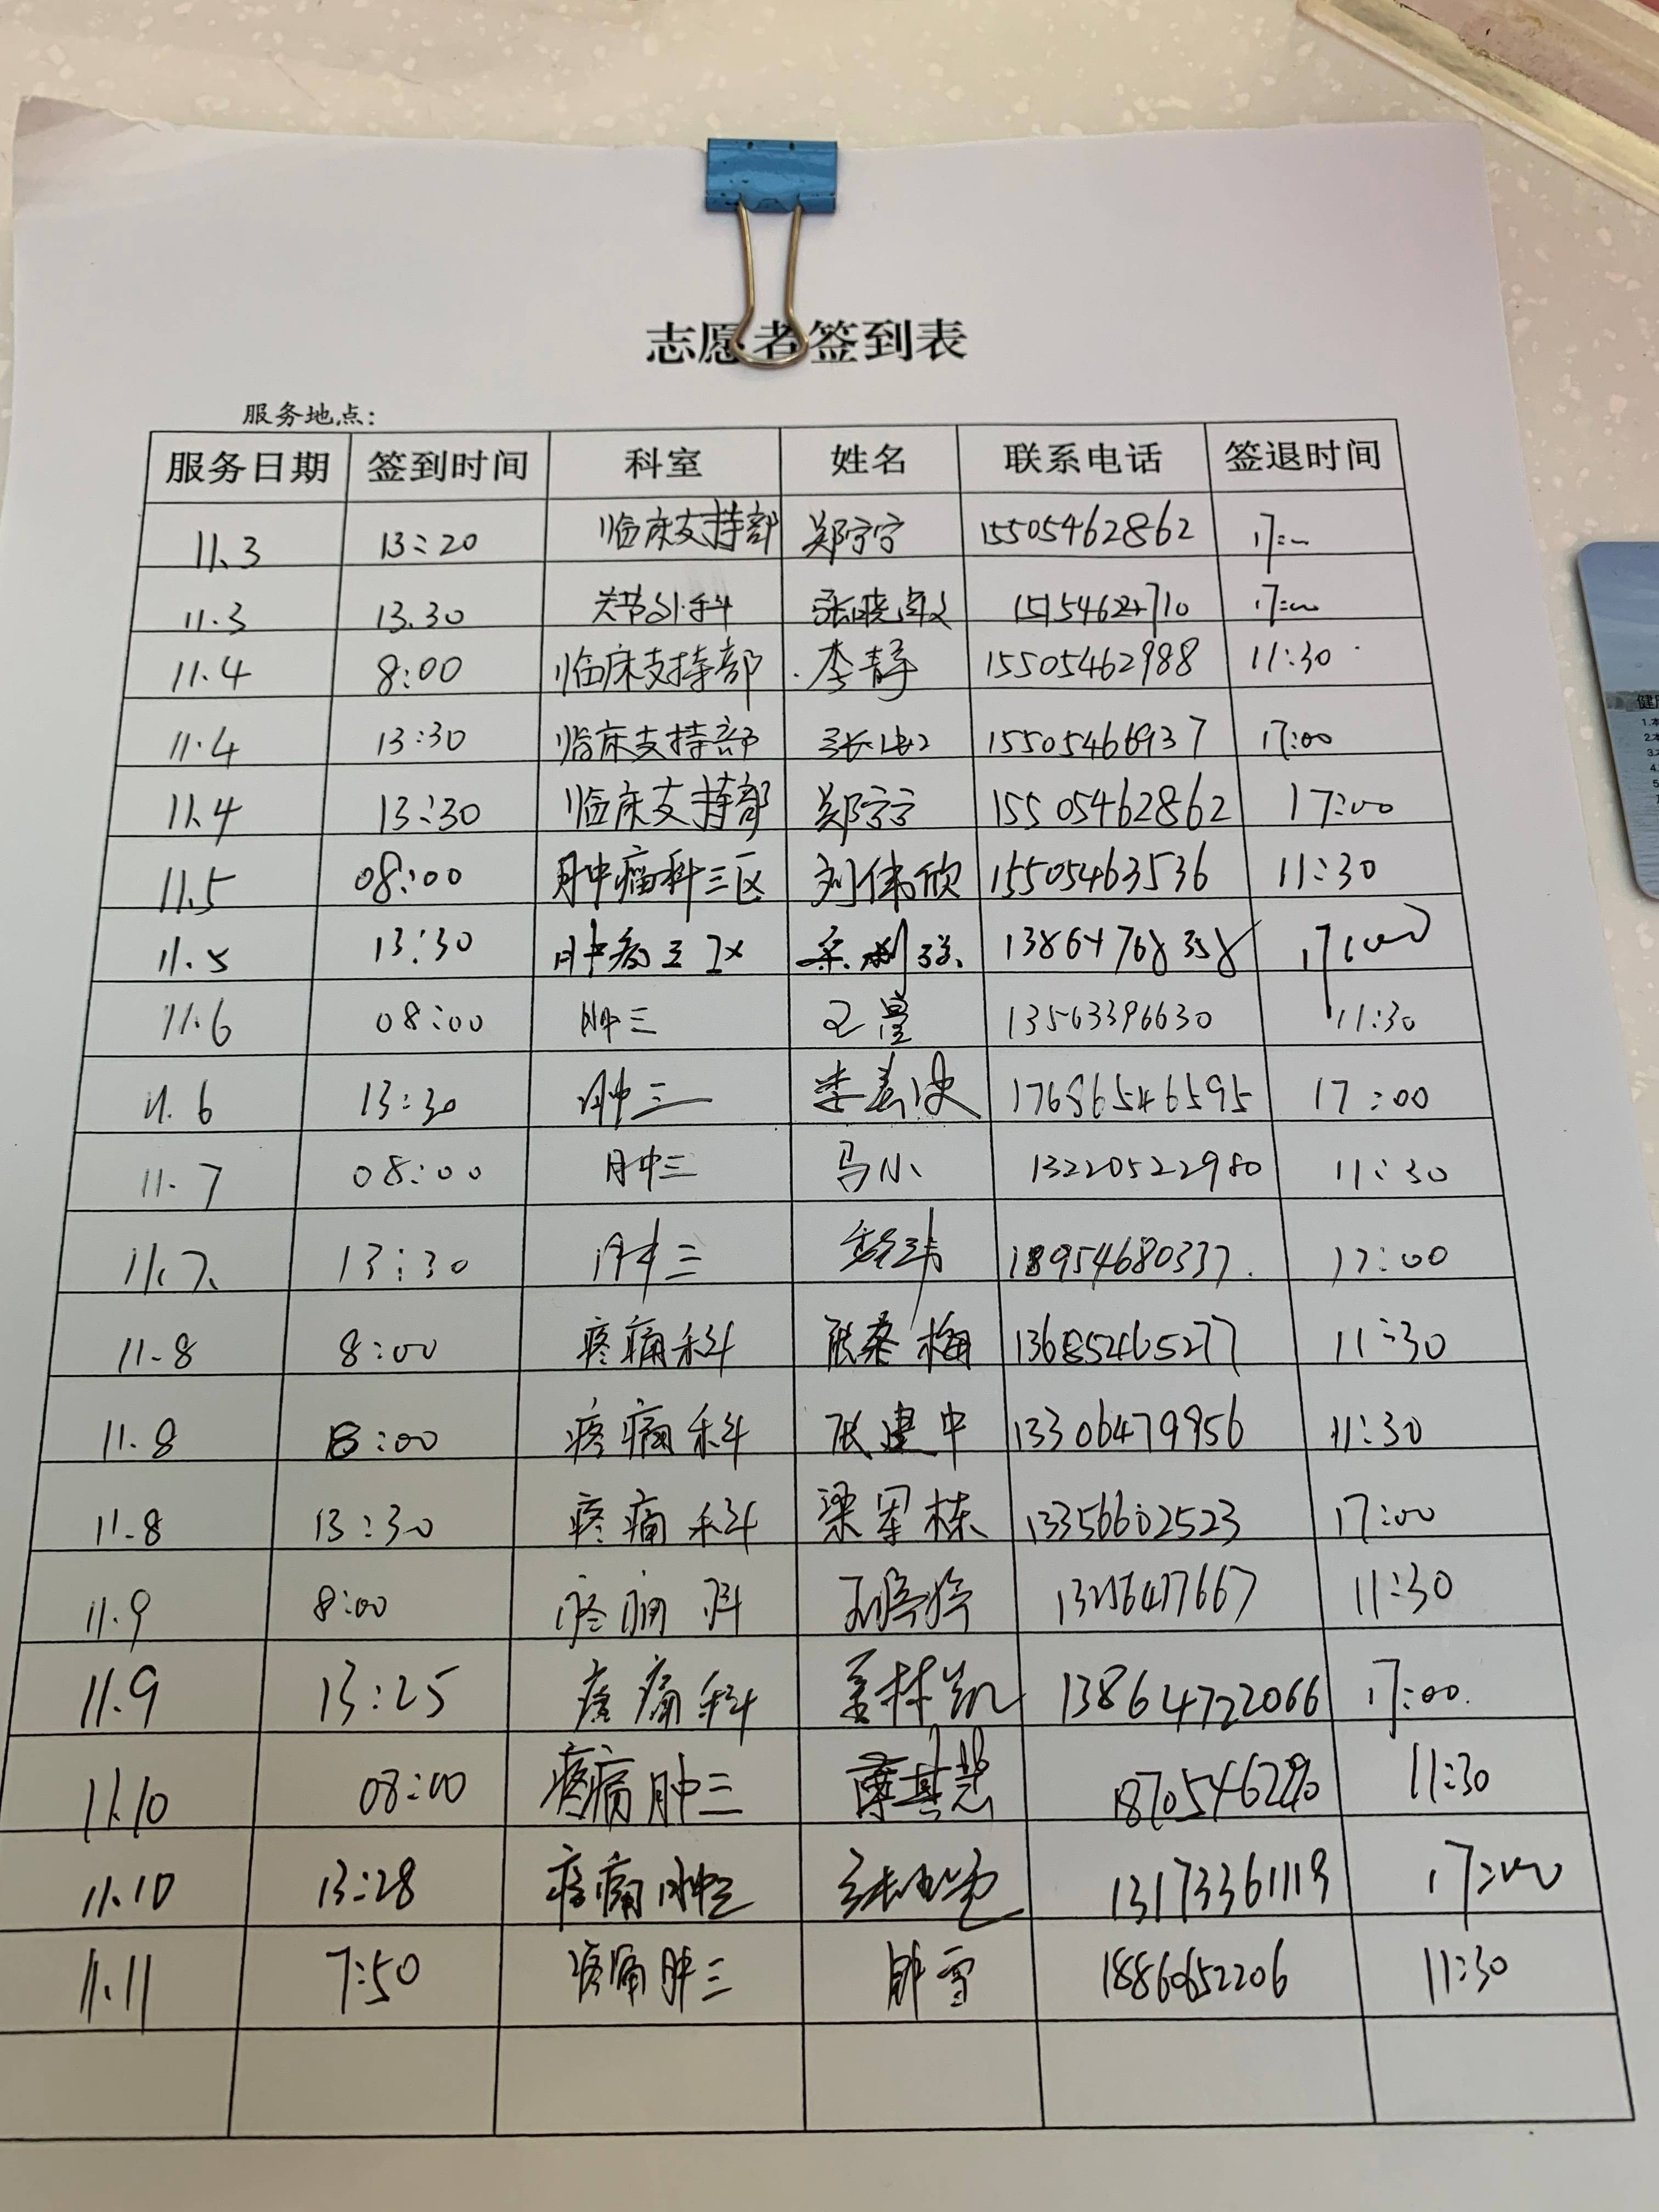 志愿者签到表
服务地点：
服务日期 签到时间 科室 姓名 联系电话 签退时间
11.3 13:20 临床支持部 郑宁宁 15505462862 17:00
11.3 13.30 关节外科 张晓 17:00
11.4 8:00 临床支持部 李静 15505462988 11:30
11.4 13:30 临床支持部 张 15505466937 17:00
11.4 13:30 临床支持部 郑宁宁 15505462862 17:00
11.5 08:00 肿瘤科三区 刘伟欣 15505463536 11:30
11.5 13:30 13864768358 17:00
11.6 08:00 肿三 13563396630 11:30
11.6 13:30 肿三 李 17686546595 17:00
11.7 08:00 肿三 马小 13220522980 11:30
11.7 13:30 肿三 18954680337 17:00
11.8 8:00 疼痛科 张 梅 13685465277 11:30
11.8 8:00 疼痛科 张建中 13306479956 11:30
11.8 13:30 疼痛科 梁军栋 13356602523 17:00
11.9 8:00 疼痛科 11:30
11.9 13:25 疼痛科 姜林凯 13864722066 17:00
11.10 08:00 疼痛肿三 薄其慧 11:30
11.10 13:28 疼痛肿三 张 13173361119 17:00
11.11 7:50 疼痛肿三 雪 18860652206 11:30